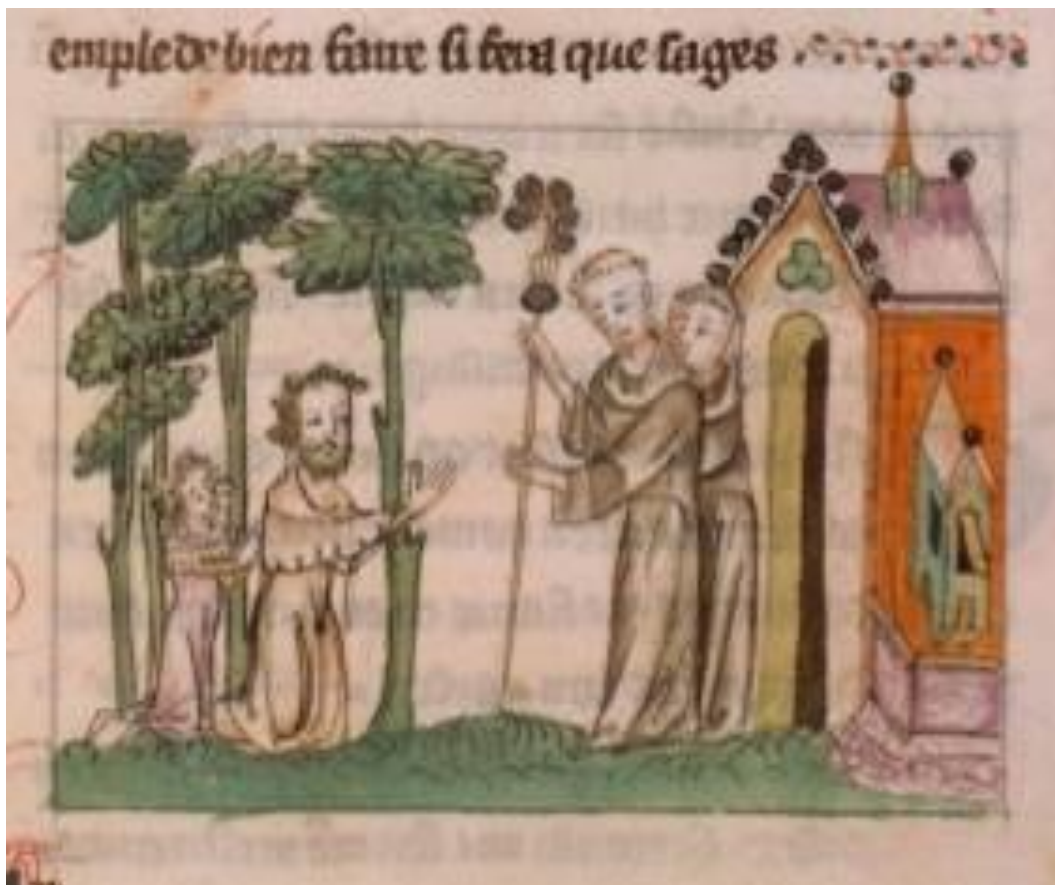 emple de bien faire si fera que sages